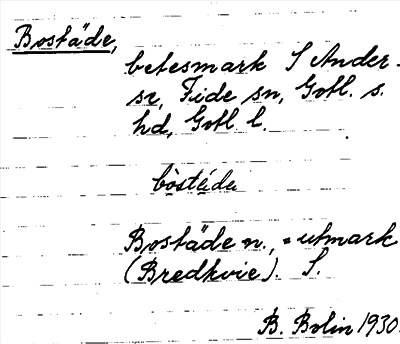 Bostäde,
betesmark S Ander-
sr, Fide sn, Gotl. s.
hd, Gotl l.
bòstéde
Bostäde n., = utmark
(Bredkvie). S.
B. Bolin 1930.